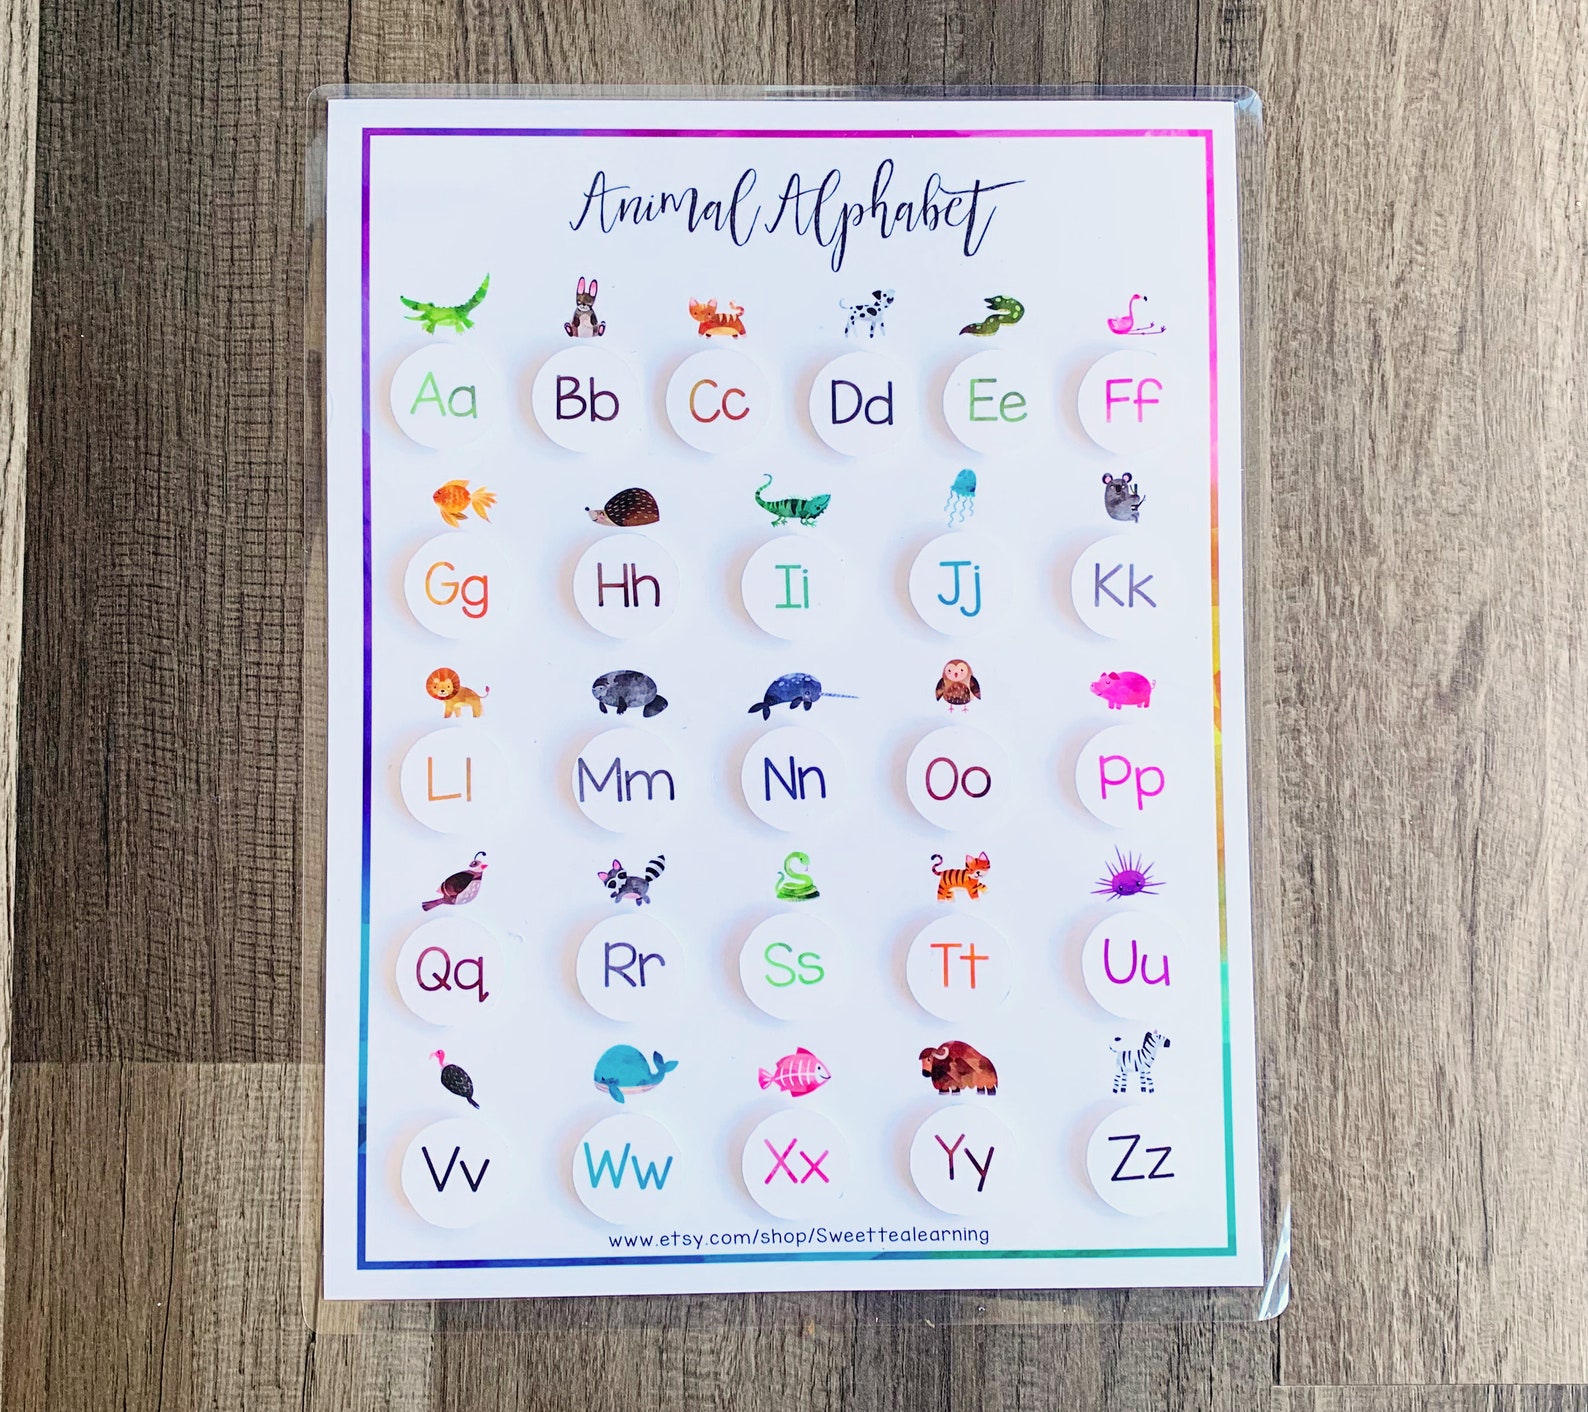 Animal Alphabet
Aa Bb Cc Dd Ee Ff
Gg Hh Ii Jj Kk
Ll Mm Nn Oo Pp
Qq Rr Ss Tt Uu
Vv Ww Xx Yy Zz
www.etsy.com/shop/Sweettealearning